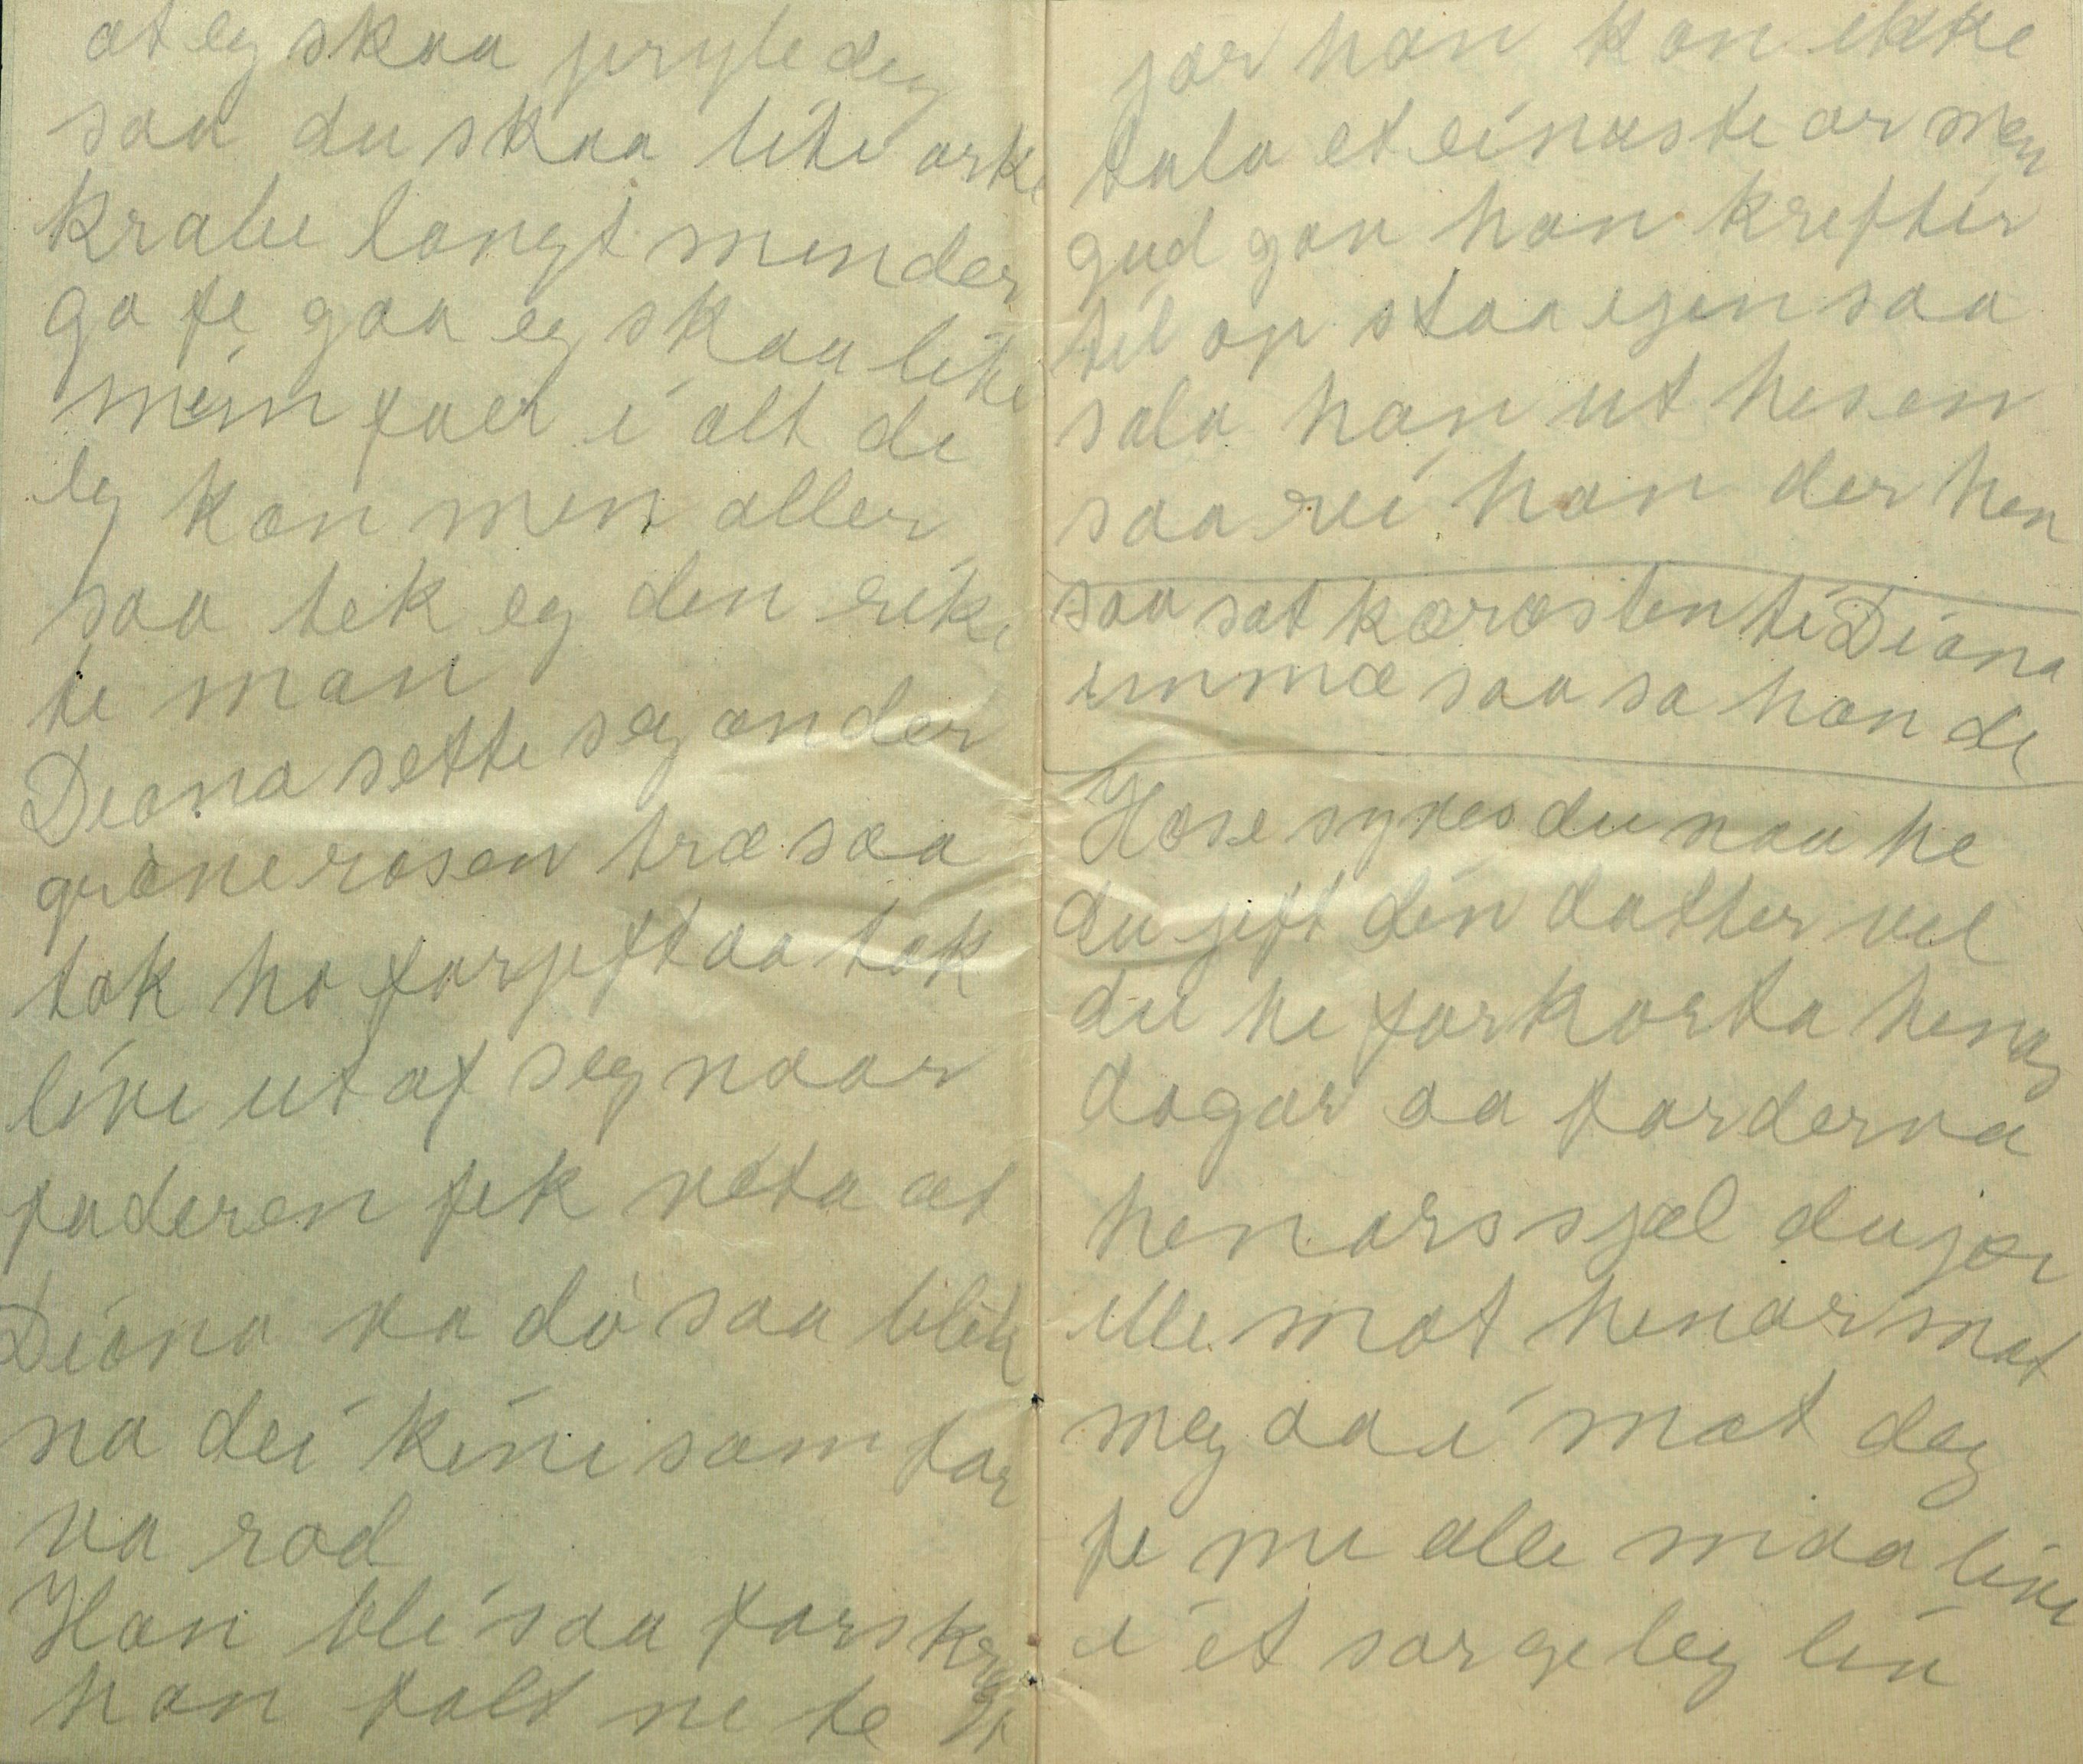 at eg skaa pryle deg
saa du skaa lite orke
krabe langt minder
ga fe gaa eg skaa like
mim faer i alt de
eg kan men aller
saa tek eg den rike
te man
Diana sette seg onder
grøne rosen træ saa
tok ho forgift aa tok
live ut af seg naar
faderen fek veta at
Diana va dø saa blik
na dei kini som för
va rod
Han blei saa forskræ
han falt ne te
jor han kan ikke
tala et einaste or men
gud gav han krefter
til op staa igen saa
sala han ut hesen
saa rei han der hen
saa sat kæræsten ti Diana
inmæ saa sa han de
Hose synes du naa he
du gift din datter vel
du he forkorta henas
dagar aa forderva
henars sjæl du jor
ille mot henar mot
meg aa i mot deg
fe me alle maa live
i et sargeleg liv